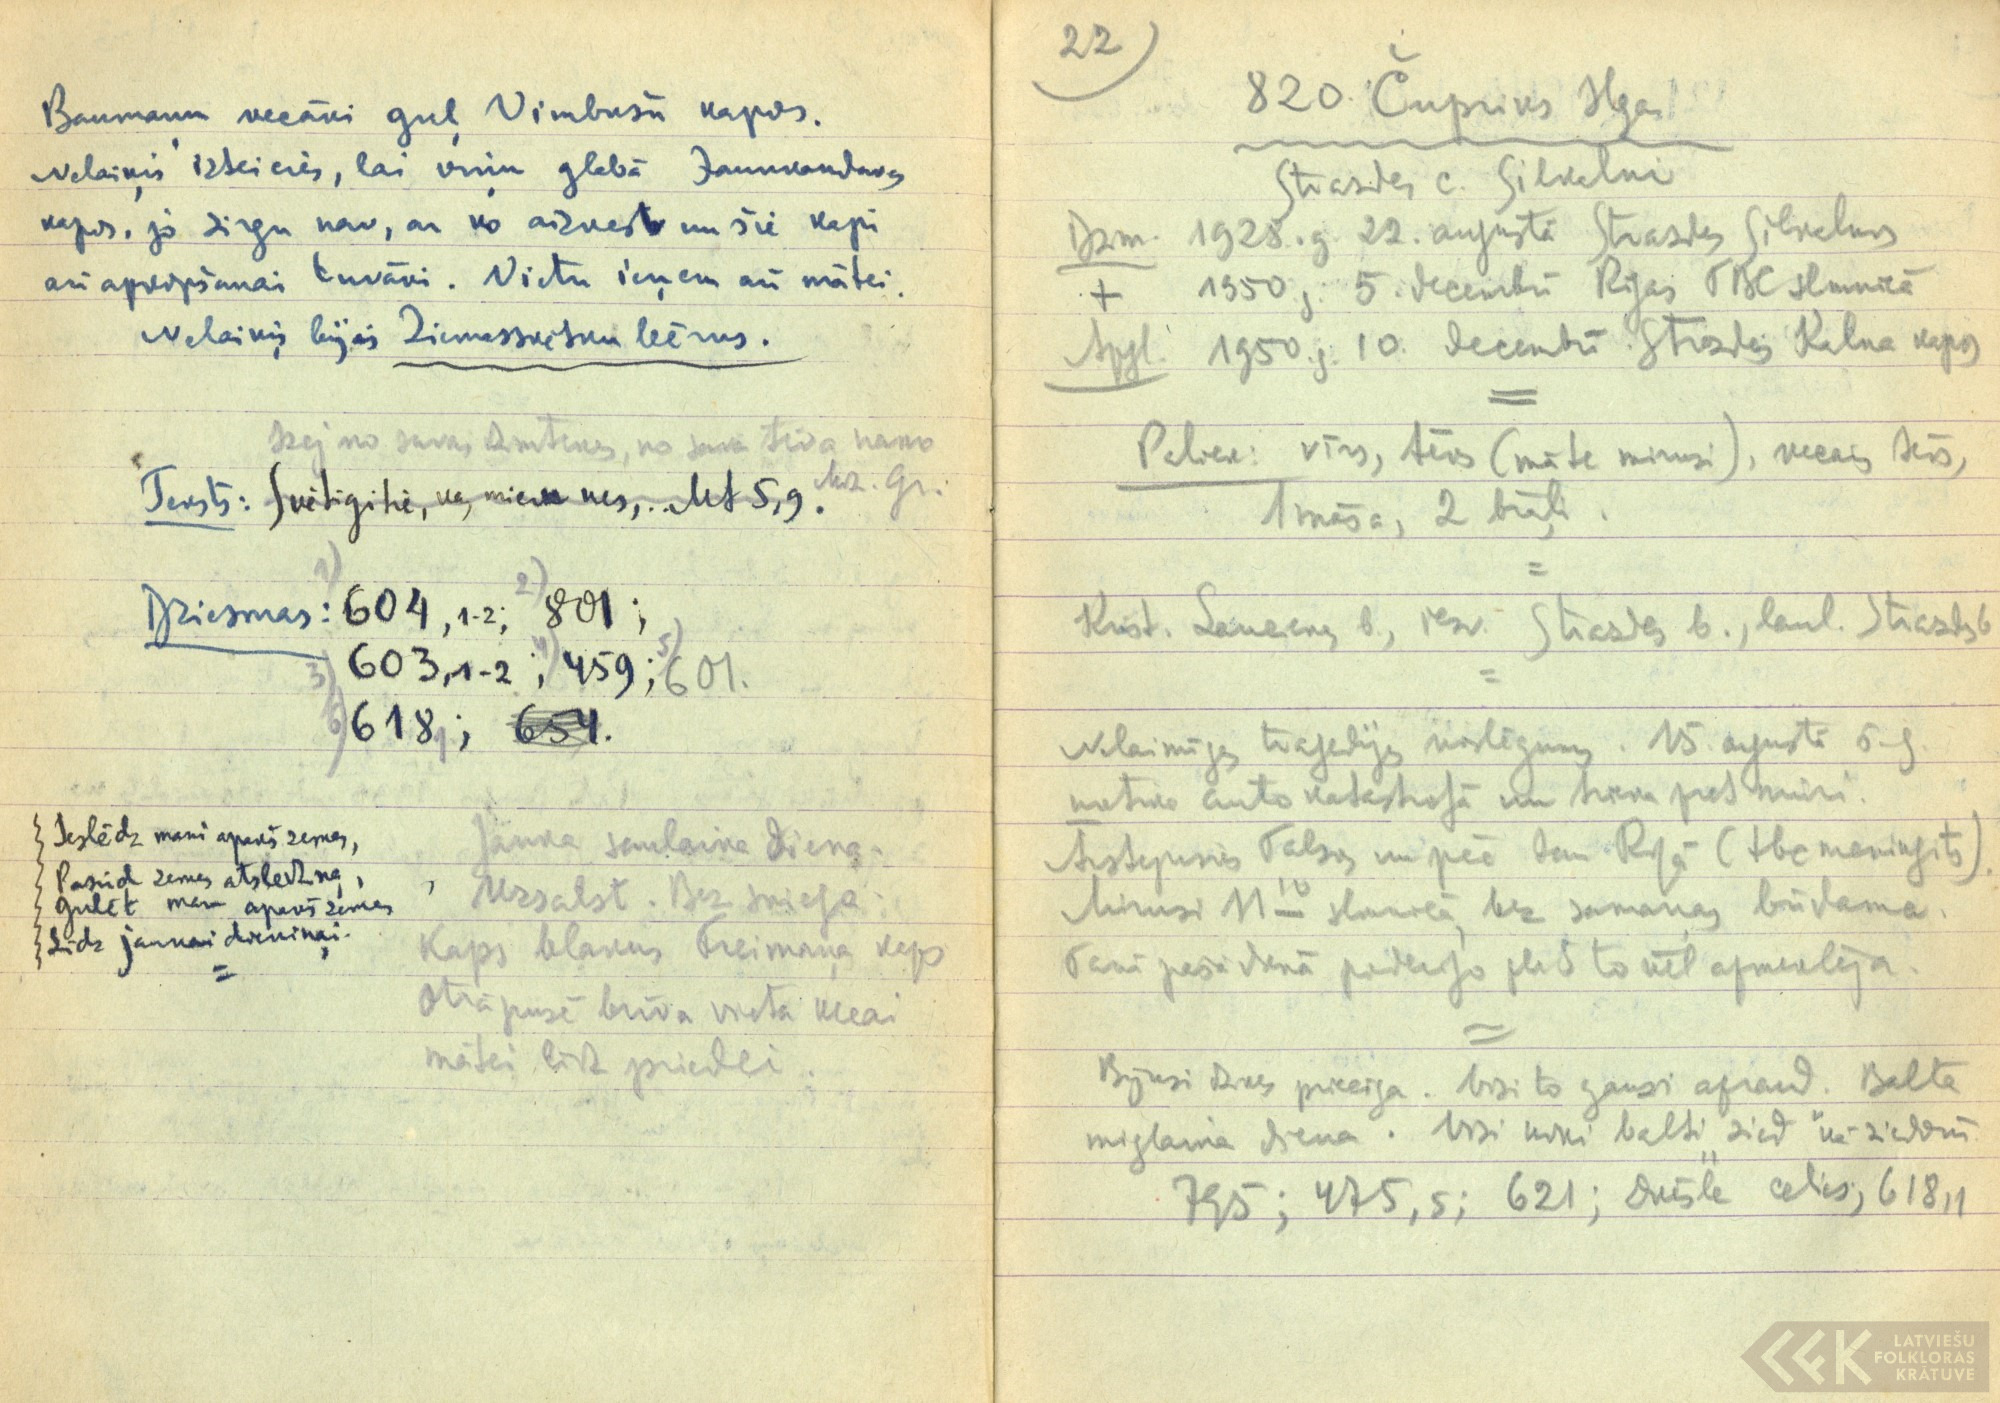 Baumaņu vecāki guļ Vimbušu kapos.
Nelaiķis izteicies, lai viņu glabā Jaunkandavas
kapos, jo zirgu nav, ar ko aizvest un šie kapi
arī apkopšanai tuvāki. Vietu ieņem arī mātei.
Nelaiķis bijis Ziemassvētku bērns.
Izej no savas dzimtenes, no sava tēva nama
Teksts: Svētīgi tie, kas mieru nes,.. Mt 5,9. Moz. Gr.
1) 2)
Dziesmas: 604, 1-2; 801;
3) 603, 1-2; 4) 459; 5) 601.
6) 618,1; 654.
Ieslēdz mani apakš zemes,
Pasūdz zemes atslēdziņu,
Gulēt man apakš zemes
Līdz jaunai dieniņai.
=
Jauka saulaina diena.
Uzsalst. Bez sniega.
Kaps blakus Freimaņa kaps
Otrā pusē brīva vieta vecai
mātei līdz priedei.
22)
820. Čupriks Ilga
Strazdes c. Silkalni
Dzim. 1928. g. 22. augustā Strazdes Silkalnos
+ 1950 g. 5. decembrī Rīgas TBC slimnīcā
Apgl. 1950. g. 10. decembrī Strazdes Kalna kapos
=
Paliek: vīrs, tēvs (māte mirusi), vecais tēvs,
1 māsa, 2 brāļi.
=
Krist. Laucienes b., iesv. Strazdes b., laul. Strazdes b
=
Nelaimīgas traģēdijas noslēgums. 15. augustā š.g.
notiko auto katastrofā un trieku pret mūri.
Ārstējusies Talsos un pēc tam Rīgā (tbc meningīts).
Mirusi 11 10 slimnīcā, bez samaņas būdama.
Tanī pašā dienā to vēl apmeklēja.
=
Bijusi dzīves priecīga. Visi to gauži apraud. Balta
miglaina diena. Visi koki balti zied "kā ziedonī"
795; 475,5; 621; Dvēsle celies; 618,1
LATVIEŠU
FOLKLORAS
KRĀTUVE